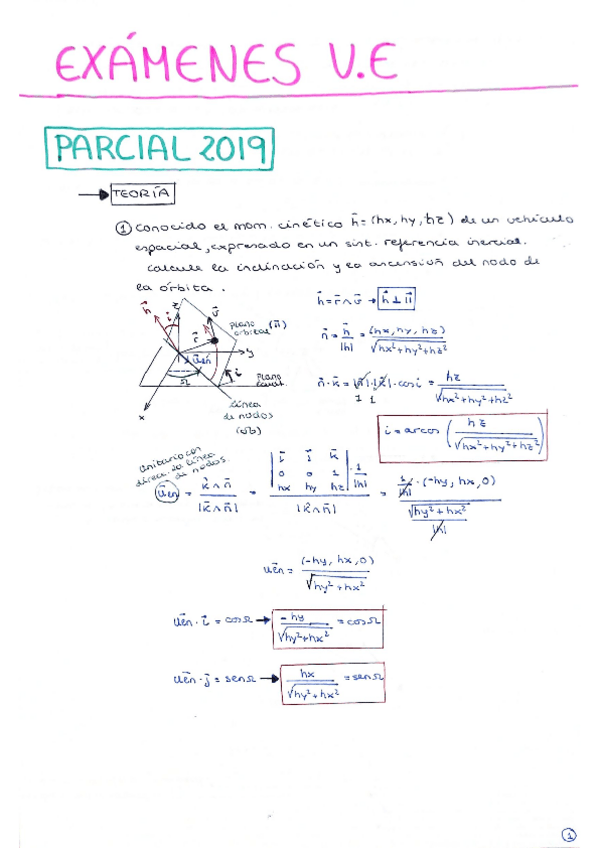 EXÁMENES V.E
PARCIAL 2019
→ TEORÍA
① Conocido el mom. cinético h⃗=(hx,hy,hz) de un vehículo
espacial, expresado en un sist. referencia inercial.
calcule la inclinación y la ascensión del nodo de
la órbita.
h⃗ = r⃗ ∧ v⃗ → h⃗ ⊥ π
n⃗ = h⃗/|h| = (hx, hy, hz)/√(hx²+hy²+hz²)
n⃗·k⃗ = |n⃗|·|k⃗|·cos i = hz/√(hx²+hy²+hz²)
1 1
i = arcos (hz/√(hx²+hy²+hz²))
h⃗ i z v⃗
r⃗
plano
orbital (π)
y
u⃗en
Ω i
plano
ecuat.
x
línea
de nodos
unitario con
direcc. de línea
de nodos.
u⃗en = k⃗∧n⃗/|k⃗∧n⃗| = |i⃗ j⃗ k⃗; 0 0 1; hx hy hz|·1/|h| / |k⃗∧n⃗| = 1/|h|·(-hy, hx, 0) / (√(hy²+hx²)/|h|)
u⃗en = (-hy, hx, 0)/√(hy²+hx²)
u⃗en · i⃗ = cosΩ → -hy/√(hy²+hx²) = cosΩ
u⃗en · j⃗ = senΩ → hx/√(hy²+hx²) = senΩ
1